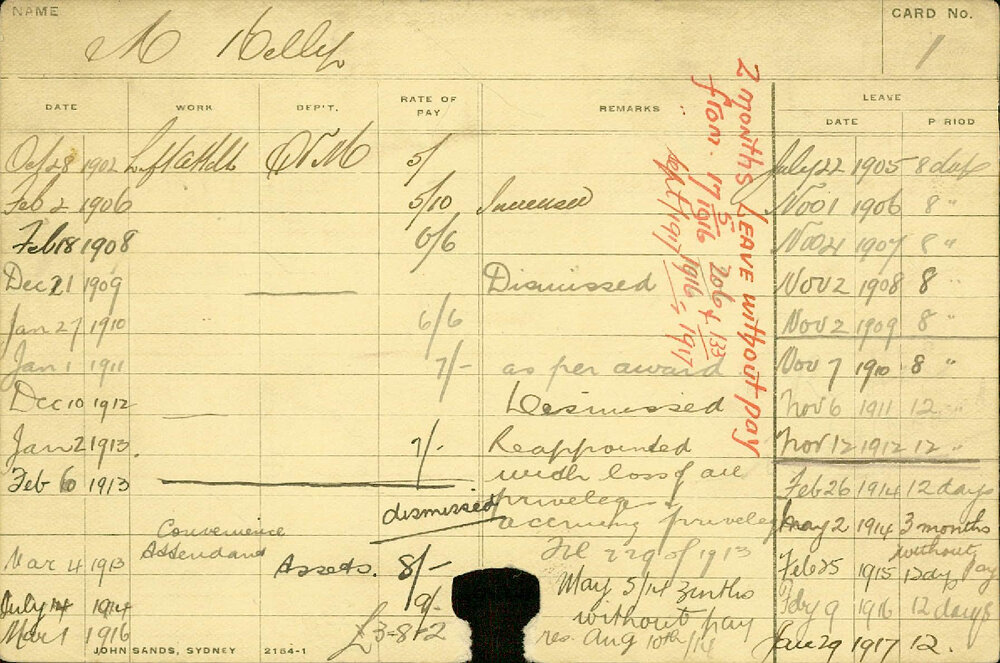 NAME
CARD No.
M Kelly
1
DATE WORK DEP'T. RATE OF PAY REMARKS LEAVE
DATE PERIOD
Oct 28 1902 Lift Attdt QVM 5/ July 22 1905 8 days
Feb 2 1906 5/10 Increased Nov 1 1906 8 "
Feb 18 1908 6/6 Nov 4 1907 8 "
Dec 21 1909 Dismissed Nov 2 1908 8 "
Jan 27 1910 6/6 Nov 2 1909 8 "
Jan 1 1911 7/- as per award Nov 7 1910 8 "
Dec 10 1912 Dismissed Nov 6 1911 12 "
Jan 2 1913. 7/- Reappointed Nov 12 1912 12 "
with loss of all
Feb 6 1913 privileges Feb 26 1914 12 days
dismissed accruing privileges May 2 1914 3 months
without pay
Convenience
Attendant
Mar 4 1913 Assets. 8/- 229 of 1913 Feb 25 1915 12 days
July 14 1914 9/- May 5/14 3 mths Feby 9 1916 12 days
without pay
Mar 1 1916 £3-8-2 res. Aug 10th/14 Jan 29 1917 12.
2 months LEAVE without pay
from. 17 5/1916 206 & 133
1916 1917
JOHN SANDS, SYDNEY 2164-1